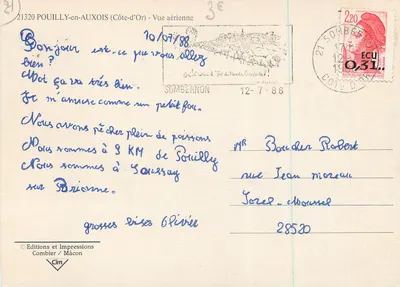 21
3€
21320 POUILLY-en-AUXOIS (Côte-d'Or) - Vue aérienne
10/07/88
Bonjour est-ce que vous allez
bien?
Moi ça va très bien.
Je m'amuse comme un petit fou.
Nous avons pêcher plein de poissons
Nous sommes à 9 KM de Pouilly
Nous sommes à Soussey
sur Brionne.
grosses bises Olivée
© Editions et Impressions
Combier / Mâcon
Cim
SOMBERNON 12-7-88
21 SOMBERNON
CÔTE D'OR
2,20
ECU
0,31
Mr Bouder Robert
rue Jean moreau
Sorel-Moussel
28520